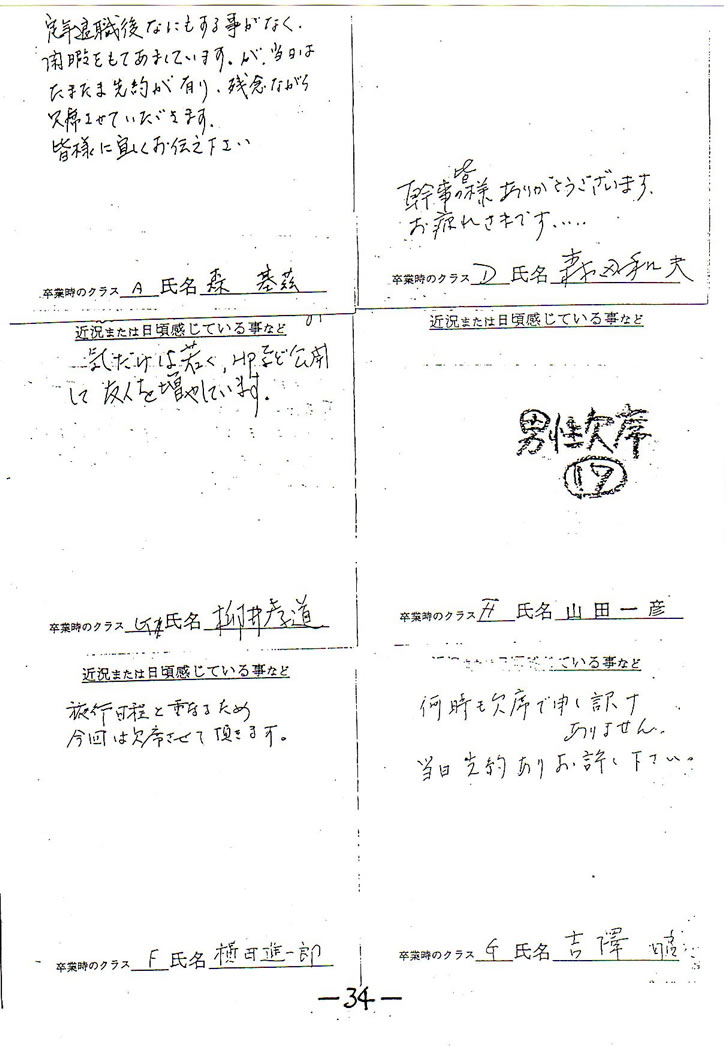 定年退職後なにもする事がなく、
閑暇をもてあましています。が、当日は
たまたま先約が有り、残念ながら
欠席させていただきます。
皆様に宜しくお伝え下さい
卒業時のクラス A 氏名 森 基茲
幹事の皆様 ありがとうございます、
お疲れさまです.....
卒業時のクラス D 氏名 夫
近況または日頃感じている事など
気だけは若く、HPなど公開
して友人を増やしています。
卒業時のクラス 氏名 柳井孝道
近況または日頃感じている事など
男性欠席
17
卒業時のクラス H 氏名 山田一彦
近況または日頃感じている事など
旅行日程と重なるため
今回は欠席させて頂きます。
卒業時のクラス F 氏名 横田進一郎
近況または日頃感じている事など
何時も欠席で申し訳
ありません。
当日先約ありお許し下さい。
卒業時のクラス G 氏名 吉澤
-34-